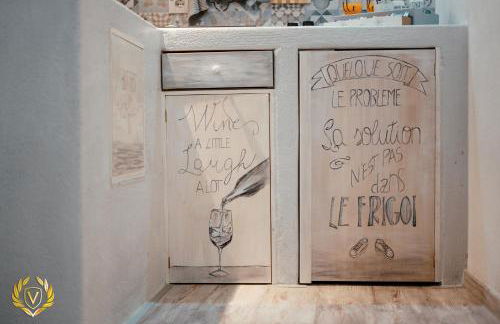 Wine
A LITTLE
Laugh
A LOT
QUELQUE SOIT
LE PROBLEME
La solution
N'EST PAS
dans
LE FRIGO!
V